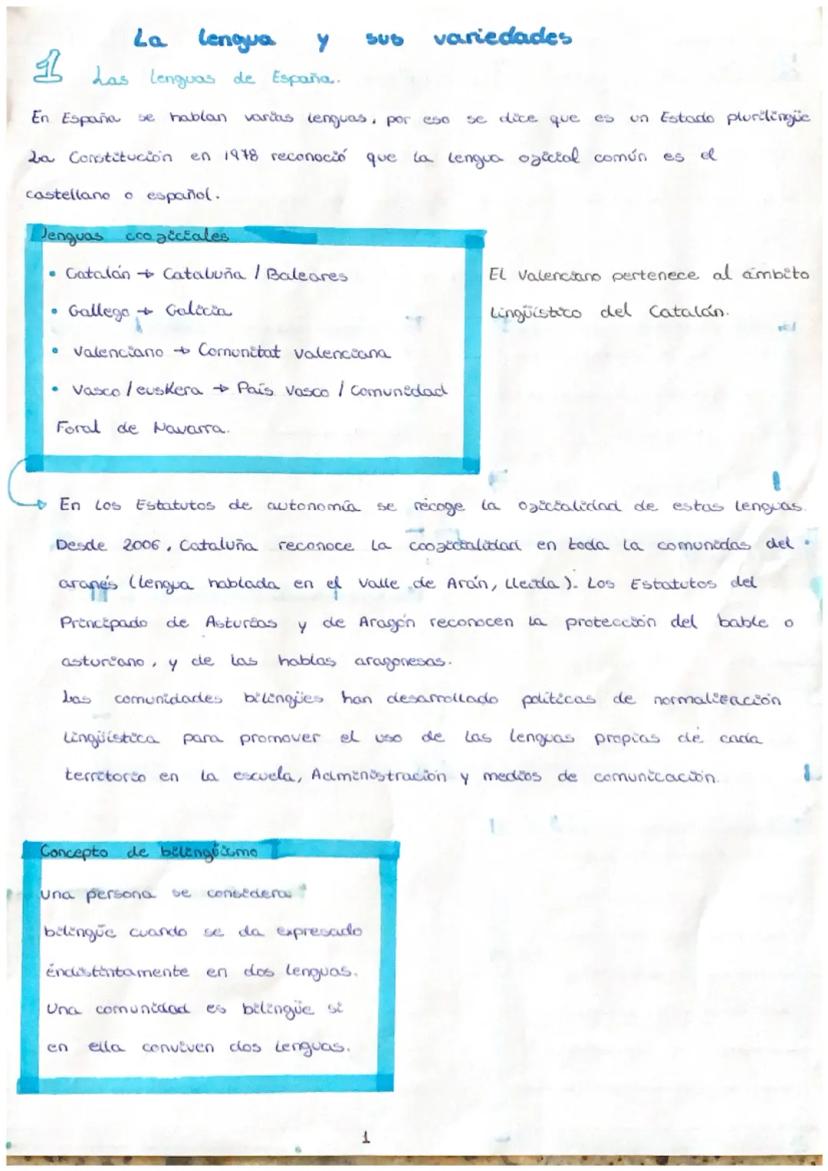 La lengua y sus variedades
1 Las lenguas de España.
En España se hablan varias lenguas, por eso se dice que es un Estado plurilingüe
La Constitución en 1978 reconoció que la lengua oficial común es el
castellano o español.
lenguas cooficiales
• Catalán → Cataluña / Baleares
• Gallego → Galicia
• Valenciano → Comunitat valenciana
• Vasco / euskera → País Vasco / Comunidad
Foral de Navarra.
El Valenciano pertenece al ámbito
Lingüístico del Catalán.
→ En los Estatutos de autonomía se recoge la oficialidad de estas lenguas.
Desde 2006, Cataluña reconoce la cooficialidad en toda la comunidas del
aranés (lengua hablada en el Valle de Arán, Lleida). Los Estatutos del
Principado de Asturias y de Aragón reconocen la protección del bable o
asturiano, y de las hablas aragonesas.
Las comunidades bilingües han desarrollado políticas de normalización
Lingüística para promover el uso de las lenguas propias de cada
territorio en la escuela, Administración y medios de comunicación.
Concepto de bilingüismo
Una persona se considera
bilingüe cuando se da expresado
indistintamente en dos lenguas.
Una comunidad es bilingüe si
en ella conviven dos lenguas.
1